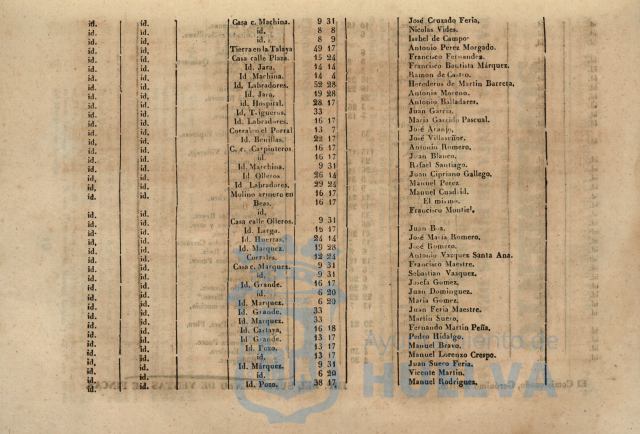 id. id. Casa c. Machina. 9 31 José Cruzado Feria,
id. id. id. 8 8 Nicolas Vides.
id. id. id. 8 9 Isabel de Campo
id. id. Tierra en la Talaya 49 17 Antonio Perez Morgado.
id. id. Casa calle Plaza. 15 24 Francisco Fernandez.
id. id. Id. Jara. 14 14 Francisco Bautista Márquez.
id. id. Id. Machina. 14 4 Ramon de Castro.
id. id. Id. Labradores. 52 28 Herederos de Martin Barreta,
id. id. Id. Jara. 19 28 Antonio Moreno.
id. id. id. Hospital. 28 17 Antonio Balladares.
id. id. Id. Trigueros. 33 Juan Garcia.
id. id. Id. Labradores. 16 17 Maria Garrido Pascual.
id. id. Corral en el Portal 13 7 José Aranjo,
id. id. Id. Bonillas. 22 17 José Villaseñor.
id. id. C. c. Carpinteros. 16 17 Antonio Romero,
id. id. id. 16 17 Juan Blanco,
id. id. Id. Marchina. 9 31 Rafael Santiago.
id. id. Id. Olleros 26 14 Juan Cipriano Gallego,
id. id. Id. Labradores. 29 24 Manuel Perez
id. id. Molino arinero en 16 17 Manuel Cuadrid.
Beas. 16 17 El mismo.
id. id. id. Francisco Montiel,
id. id. Casa calle Olleros. 9 31
id. id. Id. Larga. 15 17 Juan Boa,
id. id. Id. Huertas. 24 14 José Maria Romero,
id. id. Id. Marquez. 19 28 José Romero,
id. id. Corrales. 12 24 Antonio Vazquez Santa Ana.
id. id. Casa c. Marquez. 9 31 Francisco Maestre.
id. id. id. 9 31 Sebastian Vazquez.
id. id. Id. Grande. 16 17 Josefa Gomez,
id. id. id. 6 20 Juan Dominguez.
id. id. Id. Marquez. 6 20 Maria Gomez,
id. id. Id. Grande. 33 Juan Feria Maestre.
id. id. Id. Marquez. 33 Martin Suero,
id. id. Id. Castaya, 16 18 Fernando Martin Peña,
id. id. Id. Grande. 13 17 Pedro Hidalgo.
id. id. Id. Pozo. 13 17 Manuel Bravo.
id. id. id. 13 17 Manuel Lorenzo Crespo.
id. id. Id. Márquez. 9 31 Juan Suero Feria.
id. id. id. 6 20 Vicente Martin,
id. id. Id. Pozo. 38 17 Manuel Rodriguez,
Ayuntamiento de
HUELVA